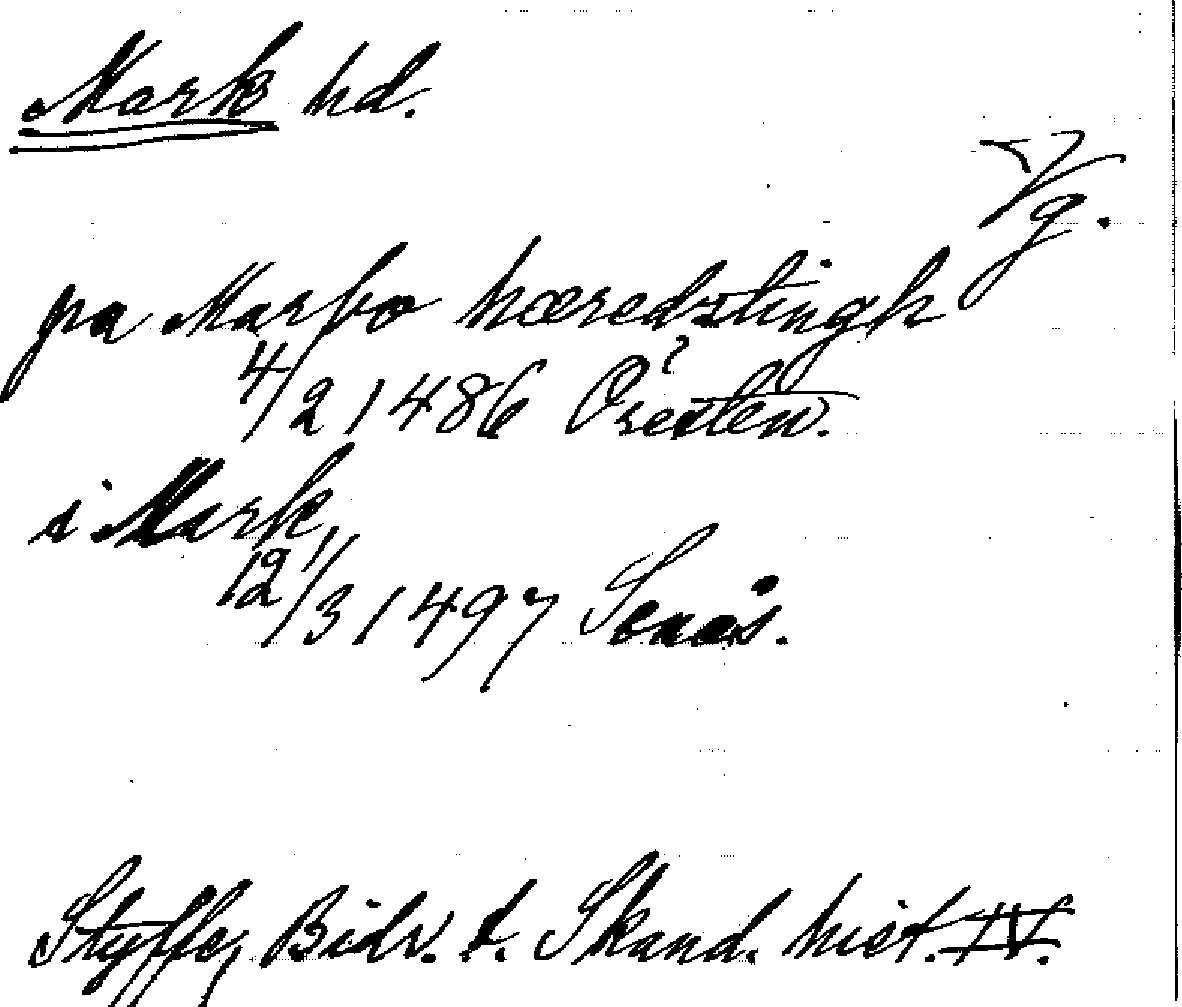 Mark hd.
Vg.
pa Marbo hæredztingh
4/2 1486 Öresten.
i Mark,
12/3 1497 Lenås.
Styffe, Bidr. t. Skand. hist. IV.